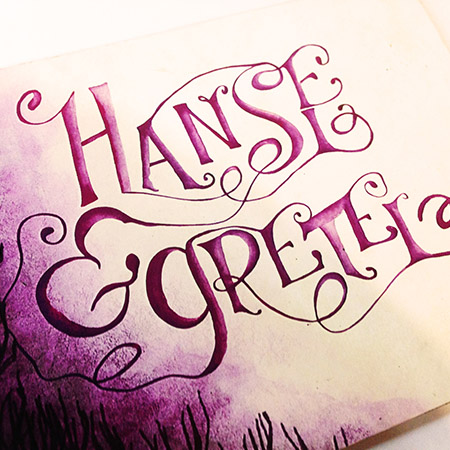 HANSEL
& GRETEL